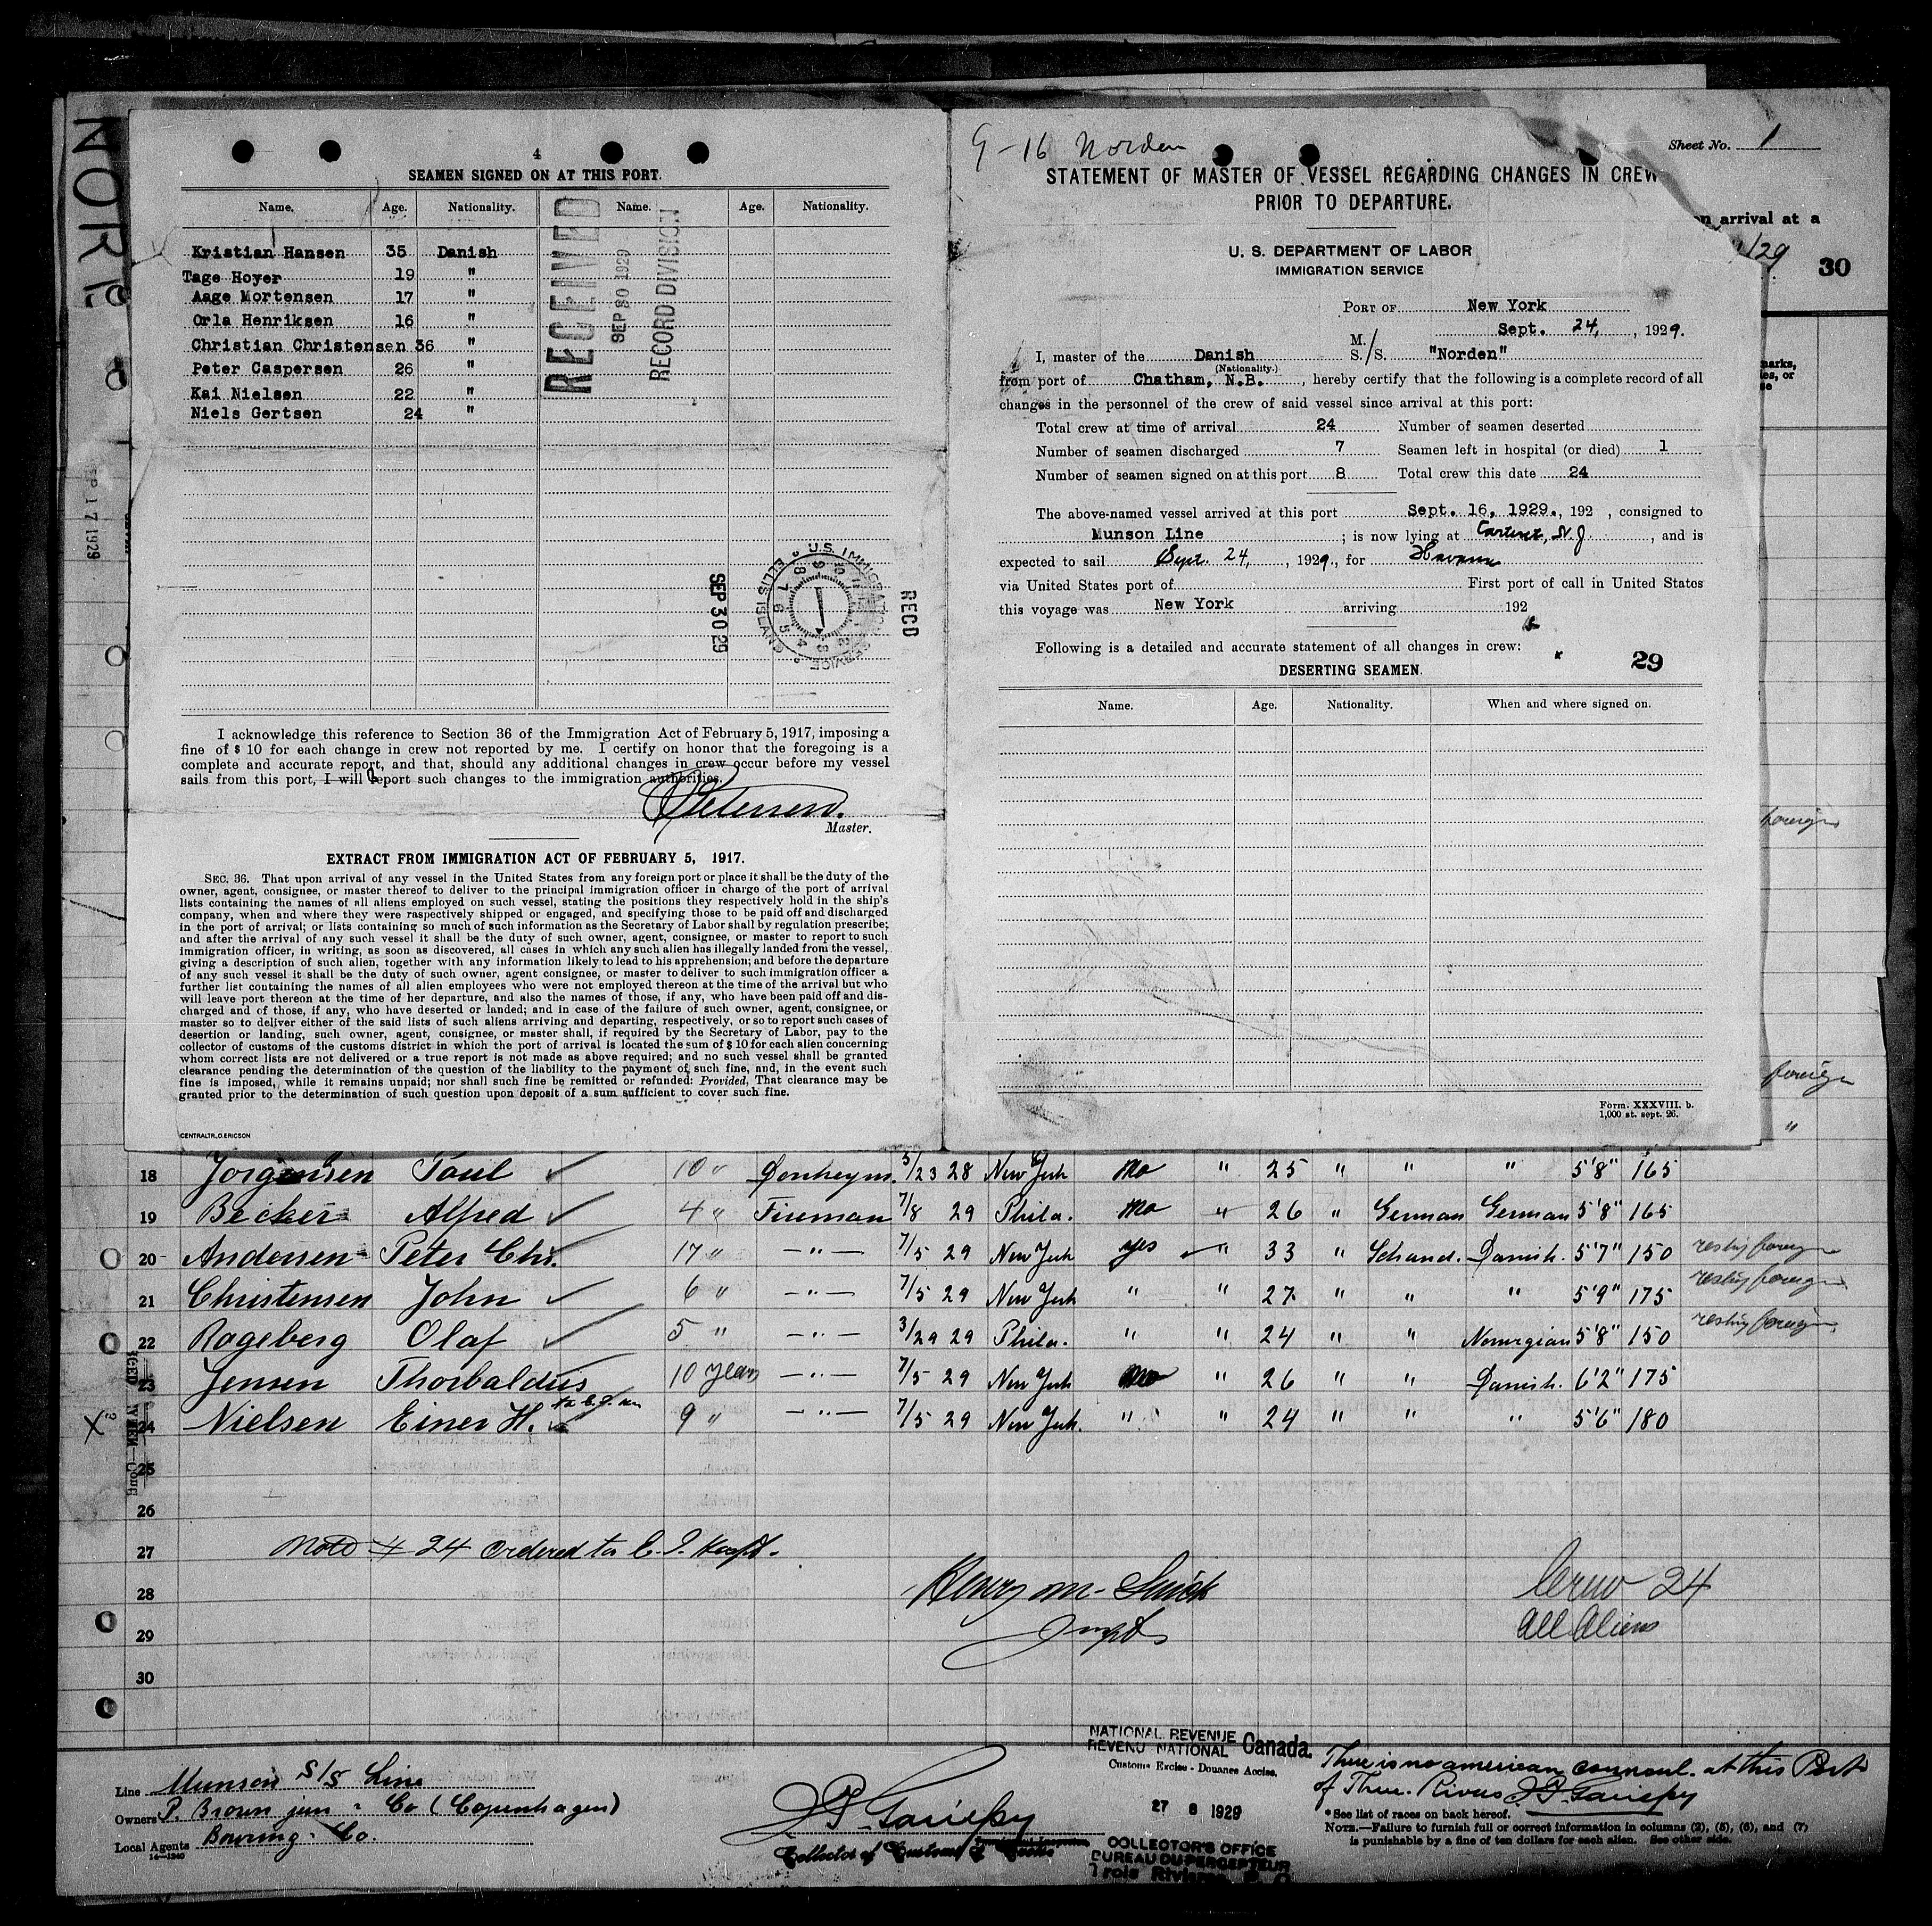 NORD
SEP 17 1929
4
SEAMEN SIGNED ON AT THIS PORT.
Name. Age. Nationality. Name. Age. Nationality.
Kristian Hansen 35 Danish
Tage Hoyer 19 "
Aage Mortensen 17 "
Orla Henriksen 16 "
Christian Christensen 36 "
Peter Caspersen 26 "
Kai Nielsen 22 "
Niels Gertsen 24 "
RECEIVED
SEP 30 1929
RECORD DIVISION
SEP 30 29
U.S. IMMIGRATION SERVICE ELLIS ISLAND
RECD
I acknowledge this reference to Section 36 of the Immigration Act of February 5, 1917, imposing a
fine of $ 10 for each change in crew not reported by me. I certify on honor that the foregoing is a
complete and accurate report, and that, should any additional changes in crew occur before my vessel
sails from this port, I will report such changes to the immigration authorities.
Master.
EXTRACT FROM IMMIGRATION ACT OF FEBRUARY 5, 1917.
SEC. 36. That upon arrival of any vessel in the United States from any foreign port or place it shall be the duty of the
owner, agent, consignee, or master thereof to deliver to the principal immigration officer in charge of the port of arrival
lists containing the names of all aliens employed on such vessel, stating the positions they respectively hold in the ship's
company, when and where they were raspectively shipped or engaged, and specifying those to be paid off and discharged
in the port of arrival; or lists containing so much of such information as the Secretary of Labor shall by regulation prescribe;
and after the arrival of any such vessel it shall be the duty of such owner, agent, consignee, or master to report to such
immigration officer, in writing, as soon as discovered, all cases in which any such alien has illegally landed from the vessel,
giving a description of such alien, together with any information likely to lead to his apprehension; and before the departure
of any such vessel it shall be the duty of such owner, agent consignee, or master to deliver to such immigration officer a
further list containing the names of all alien employees who were not employed thereon at the time of the arrival but who
will leave port thereon at the time of her departure, and also the names of those, if any, who have been paid off and dis-
charged and of those, if any, who have deserted or landed; and in case of the failure of such owner, agent, consignee, or
master so to deliver either of the said lists of such aliens arriving and departing, respectively, or so to report such cases of
desertion or landing, such owner, agent, consignee, or master shall, if required by the Secretary of Labor, pay to the
collector of customs of the customs district in which the port of arrival is located the sum of $ 10 for each alien concerning
whom correct lists are not delivered or a true report is not made as above required; and no such vessel shall be granted
clearance pending the determination of the question of the liability to the payment of such fine, and, in the event such
fine is imposed, while it remains unpaid; nor shall such fine be remitted or refunded: Provided, That clearance may be
granted prior to the determination of such question upon deposit of a sum sufficient to cover such fine.
CENTRALTR., O. ERICSON
9-16 Norden
Sheet No. 1
STATEMENT OF MASTER OF VESSEL REGARDING CHANGES IN CREW
PRIOR TO DEPARTURE.
arrival at a
/29 30
U. S. DEPARTMENT OF LABOR
IMMIGRATION SERVICE
PORT OF New York
Sept. 24, , 1929.
I, master of the Danish M./S. S. "Norden"
(Nationality.)
from port of Chatham, N.B. , hereby certify that the following is a complete record of all
changes in the personnel of the crew of said vessel since arrival at this port:
Total crew at time of arrival 24 Number of seamen deserted
Number of seamen discharged 7 Seamen left in hospital (or died) 1
Number of seamen signed on at this port 8 Total crew this date 24
The above-named vessel arrived at this port Sept. 16, 1929., 192 , consigned to
Munson Line ; is now lying at Carteret, N.J. , and is
expected to sail Sept. 24, , 1929., for Havana
via United States port of First port of call in United States
this voyage was New York arriving 192
Following is a detailed and accurate statement of all changes in crew:
29
DESERTING SEAMEN.
Name. Age. Nationality. When and where signed on.
Form. XXXVIII. b.
1,000 st. sept. 26.
foreign
foreign
"
18 Jorgensen Poul 10 " Donkeym. 5/23 28 New York no " 25 " " " 5'8" 165
19 Becker Alfred 4 " Fireman 7/8 29 Phila. no " 26 " German German 5'8" 165
20 Andersen Peter Chr. 17 " -"- 7/5 29 New York yes " 33 " Schand. Danish. 5'7" 150 reship foreign
21 Christensen John 6 " -"- 7/5 29 New York " " 27 " " " 5'9" 175 reship foreign
22 Rageberg Olaf 5 " -"- 3/29 29 Phila. " " 24 " " Norwegian 5'8" 150 reship foreign
23 Jensen Thorbaldus 10 years -"- 7/5 29 New York no " 26 " " Danish. 6'2" 175
24 Nielsen Einer H. 9 " -"- 7/5 29 New York. " " 24 " " " 5'6" 180
25
26
27 Note # 24 ordered to E. I. Hospt.
28 Crew 24
29 All Aliens
30
Line Munson S/S Line
Owners P. Brown jun. & Co (Copenhagen)
Local Agents Bowring & Co.
14-1240
Collector of Customs
NATIONAL REVENUE
REVENU NATIONAL Canada.
Customs Excise - Douanes Accise.
27 8 1929
COLLECTOR'S OFFICE
BUREAU DU PERCEPTEUR
Trois Rivieres
There is no american counsul. at this Port
of Three. Rivers
*See list of races on back hereof.
NOTE.—Failure to furnish full or correct information in columns (2), (5), (6), and (7)
is punishable by a fine of ten dollars for each alien. See other side.